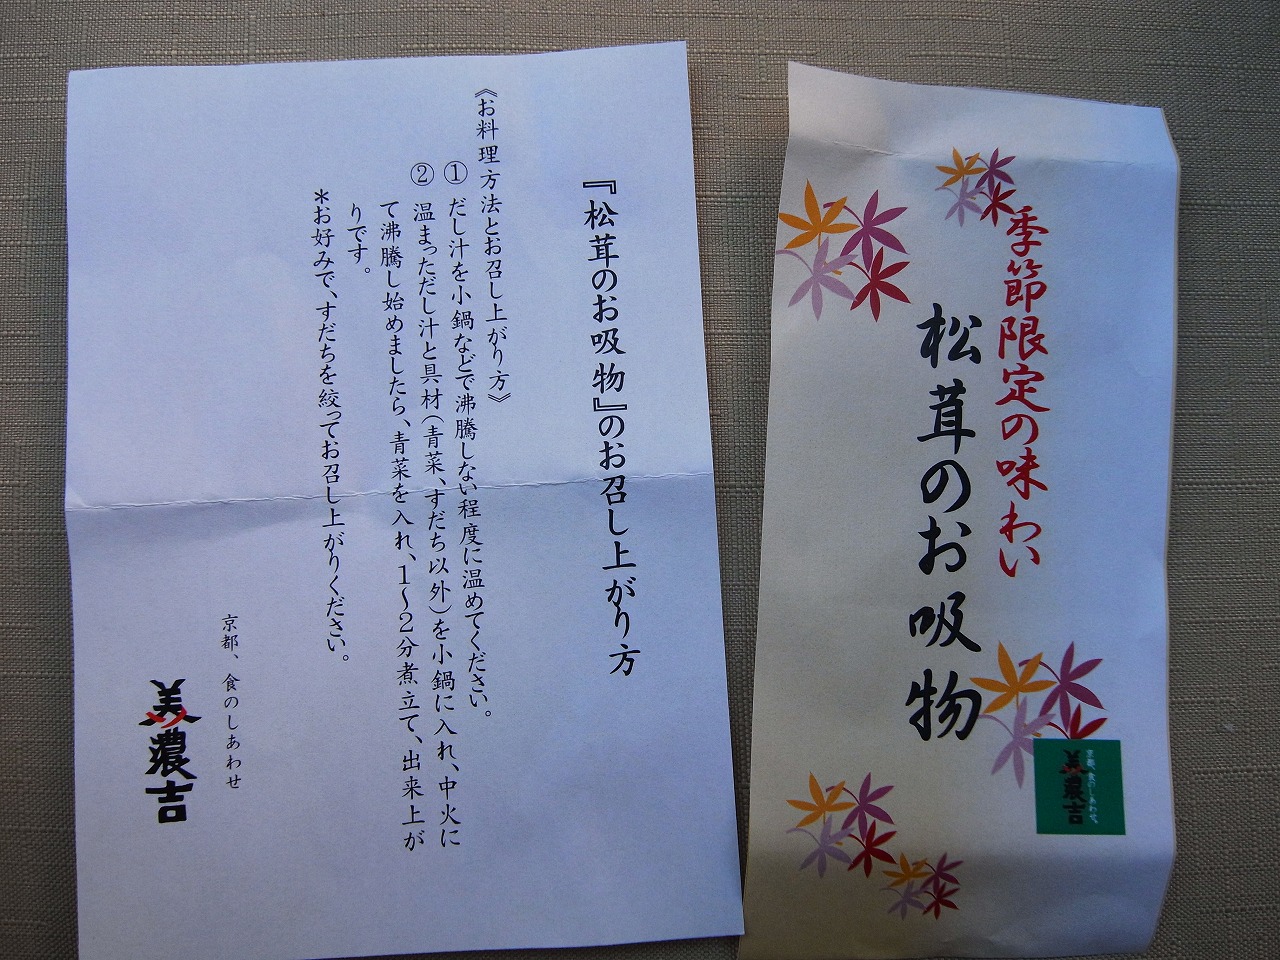 『松茸のお吸物』のお召し上がり方
《お料理方法とお召し上がり方》
① だし汁を小鍋などで沸騰しない程度に温めてください。
② 温まっただし汁と具材（青菜、すだち以外）を小鍋に入れ、中火に
て沸騰し始めましたら、青菜を入れ、1～2分煮立て、出来上が
りです。
＊お好みで、すだちを絞ってお召し上がりください。
京都、食のしあわせ
美濃吉
季節限定の味わい
松茸のお吸物
京都、食のしあわせ
美濃吉